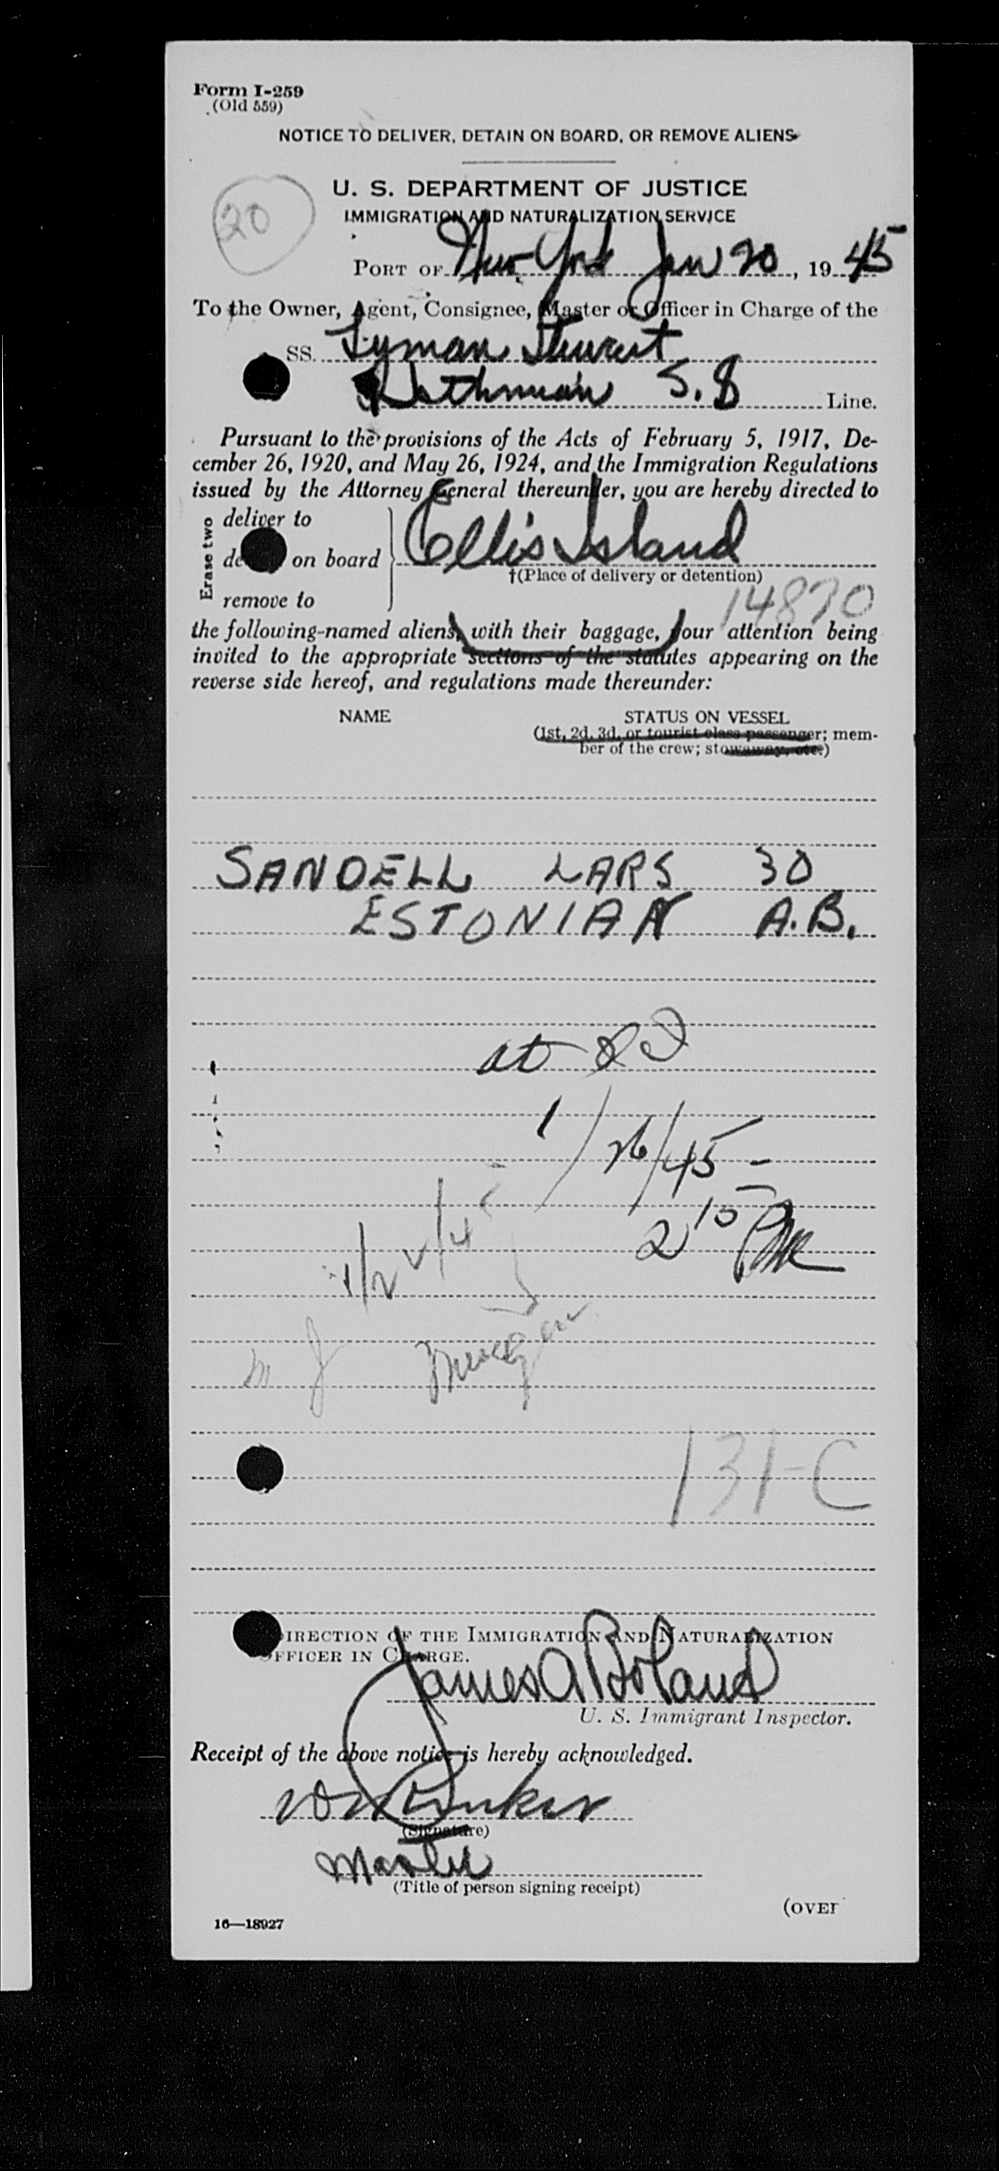 Form I-259
(Old 559)
NOTICE TO DELIVER, DETAIN ON BOARD, OR REMOVE ALIENS
U. S. DEPARTMENT OF JUSTICE
20
IMMIGRATION AND NATURALIZATION SERVICE
PORT OF New York Jan 20, 1945
To the Owner, Agent, Consignee, Master or Officer in Charge of the
SS. Lyman Stewart
Isthmian S.S Line.
Pursuant to the provisions of the Acts of February 5, 1917, De-
cember 26, 1920, and May 26, 1924, and the Immigration Regulations
issued by the Attorney General thereunder, you are hereby directed to
Erase two
deliver to
on board Ellis Island
†(Place of delivery or detention)
remove to
14870
the following-named aliens, with their baggage, your attention being
invited to the appropriate sections of the statutes appearing on the
reverse side hereof, and regulations made thereunder:
NAME STATUS ON VESSEL
(1st, 2d, 3d, or tourist class passenger; mem-
ber of the crew; stowaway, etc.)
SANDELL LARS 30
ESTONIAN A.B.
at
1/26/45-
2 15 PM
1/22/45
131-C
DIRECTION OF THE IMMIGRATION AND NATURALIZATION
OFFICER IN CHARGE.
James A Boland
U. S. Immigrant Inspector.
Receipt of the above notice is hereby acknowledged.
(Signature)
Master
(Title of person signing receipt)
(OVER
16—18927